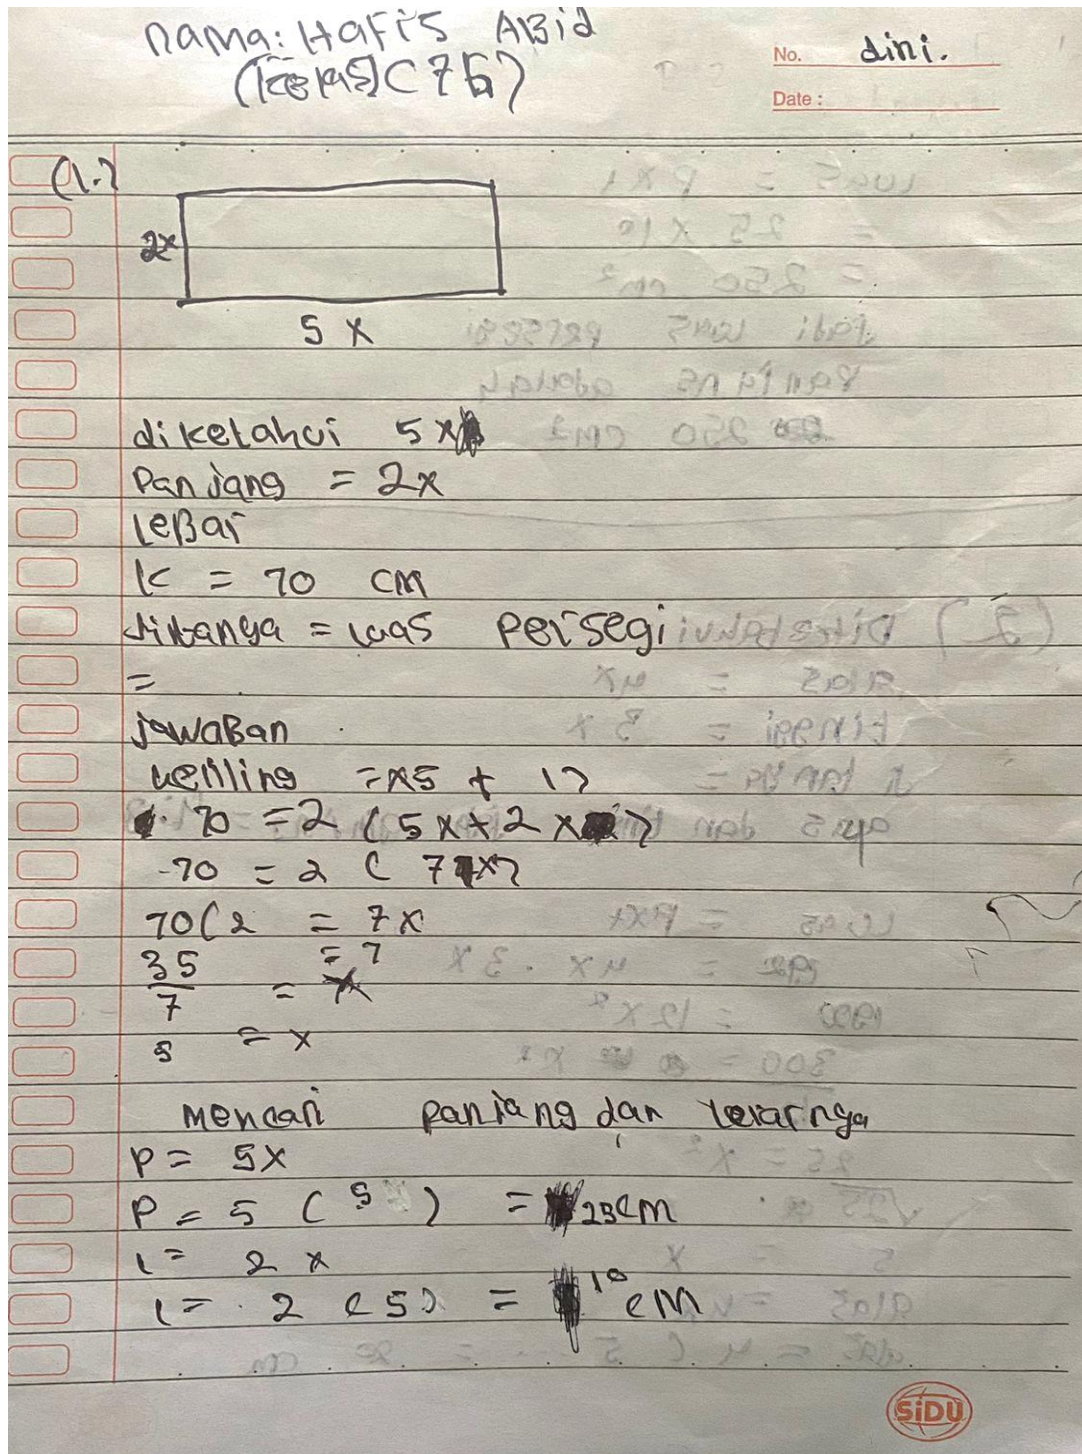 nama: Hafis ABid
(kelas) (7B)
No. dini.
Date :
(1.)
2x
5 x
diketahui 5x
Panjang = 2x
leBar
K = 70 cm
ditanya = luas persegi
=
jawaBan
keliling = x5 + 1)
70 = 2 (5x+2x)
-70 = 2 ( 7x)
70(2 = 7x
35 = 7
7 = x
5 = x
mencari panjang dan lebarnya
P = 5x
P = 5 ( 5 ) = 25cm
l = 2 x
l = 2 (5) = 10 cm
SiDU